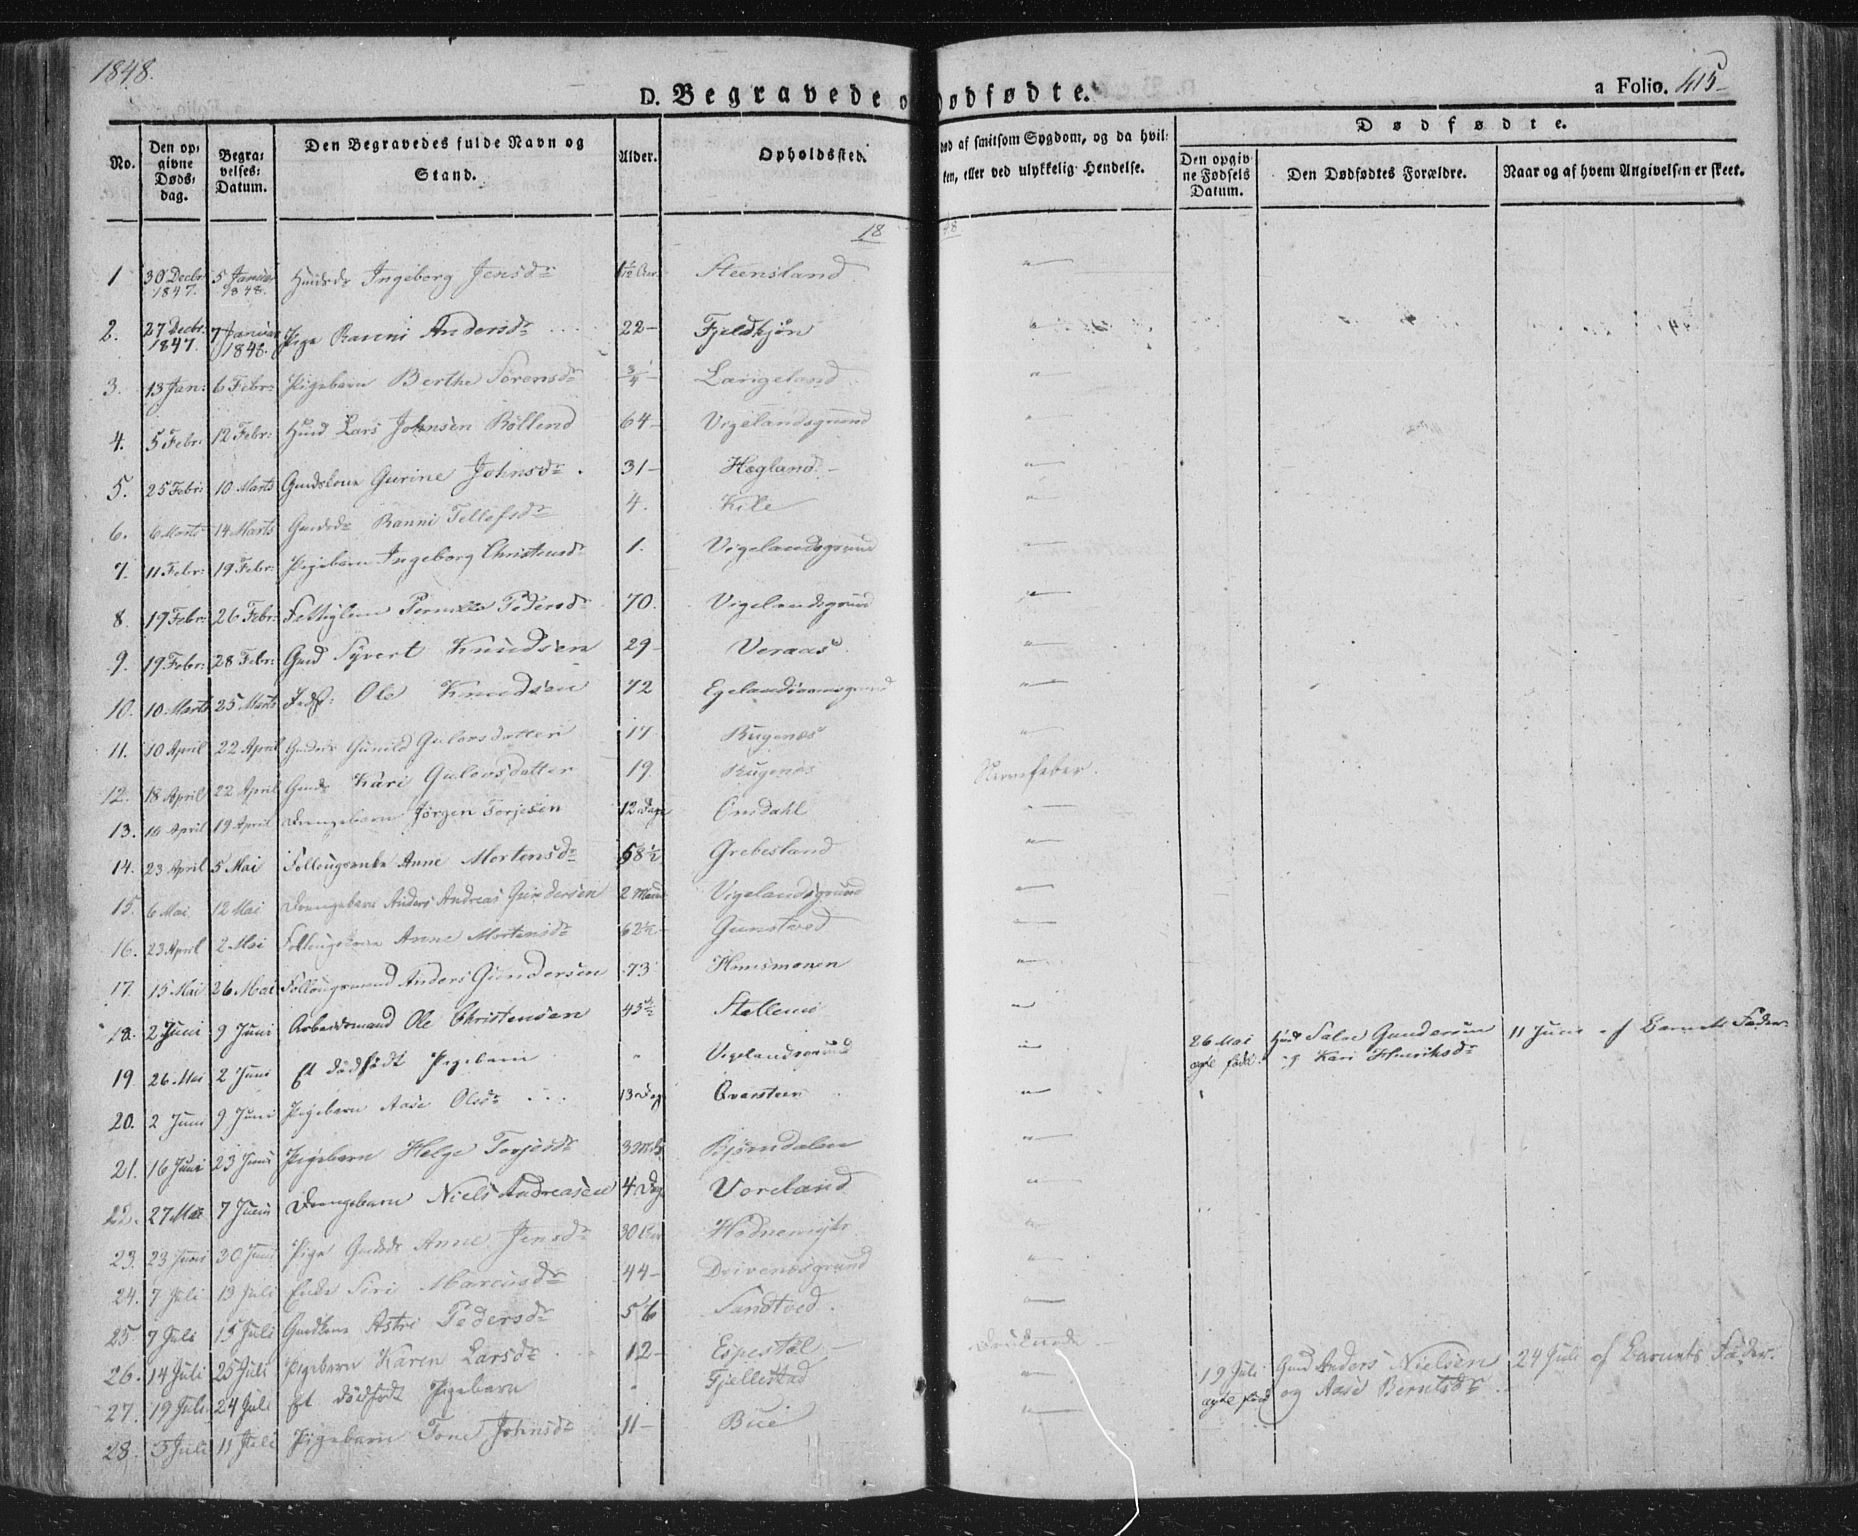 1848.
D. Begravede o
Dødfødte.
a Folio. 415
No.
Den op-
givne
Døds-
dag.
Begra-
velses-
Datum.
Den Begravedes fulde Navn og
Stand.
Alder.
Opholdssted.
død af smitsom Sygdom, og da hvil-
ken, eller ved ulykkelig Hendelse.
Dødfødte.
Den opgiv-
ne Fødsels
Datum.
Den Dødfødtes Forældre.
Naar og af hvem Angivelsen er skeet.
18 48
1 30 Decbr 1847. 5 Januar 1848. Ingeborg Jensdr Steensland "
2. 27 Decbr. 1847. 7 Januar 1848. Pige Ranni Andersdr 22 Fjeldkjøn "
3. 13 Jan: 6 Febr: Pigebarn Berthe Sørensdr 3/4 Langeland "
4. 5 Febr: 12 Febr: Huusd Lars Johnsen Røllend 64 Vigelandsgrund "
5. 25 Febr: 10 Marts Gurine Johnsdr 31 Hægland "
6. 6 Marts 14 Marts Ranni Tellefsdr 4. Kile "
7. 11 Febr: 19 Febr: Pigebarn Ingeborg Christensdr 1. Vigelandsgrund "
8. 19 Febr: 26 Febr: Fattiglem Pernille Pedersdr 70. Vigelandsgrund "
9. 19 Febr: 28 Febr: Gmd Syvert Knudsen 29 Veraas "
10. 10 Marts 25 Marts Ole Knudsen 72 "
11. 10 April 22 April Gunild Gulovsdatter 17 Rugenes "
12. 18 April 22 April Kari Gulovsdatter 19. Rugenes Nervefeber.
13. 19 April Drengebarn Jørgen Torjesen 12 Dage Omdahl "
14. 23 April 5 Mai Follougsenke Anne Mortensdr 58 1/2 Grebesland "
15. 6 Mai 12 Mai Drengebarn Anders Andreas Gundersen 2 Maan Vigelandsgrund "
16. 23 April 2 Mai Follougskone Anne Mortensdr 62 1/2 Gunstved "
17. 15 Mai 26 Mai Follougsmand Anders Gundersen 73 Homsmonen "
18. 2 Juni 9 Juni Arbeidsmand Ole Christensen 45 1/2 "
19 26 Mai 2 Juni Et dødfødt Pigebarn " Vigelandsgrund " 26 Mai ægte født. Salve Gundersen og Kari Henriksdr 11 Juni af Barnets Fader
20. 2 Juni 9 Juni Pigebarn Aase Olsdr 13 Dag Qvarsteen "
21. 16 Juni 23 Juni Pigebarn Helge Torjesdr Bjørndalen "
22. 27 Mai 7 Juni Drengebarn Niels Andreasen 4 Dag Voreland "
23. 23 Juni 30 Juni Pige Anne Jensdr "
24. 7 Juli 13 Juli Enke Siri Marcusdr 44 Drivenesgrund "
25 7 Juli 15 Juli Astri Pedersdr 56 Sandtved. "
26. 14 Juli 25 Juli Pigebarn Karen Larsdr 12 Espestøl Druknede
27. 19 Juli 24 Juli Et dødfødt Pigebarn " Gjellestad " 19 Juli ægte fød Gmd Anders Nielsen og Aase Berntsdr 24 Juli af Barnets Fader.
28. 5 Juli 11 Juli Pigebarn Tone Johnsdr 11 Bue "